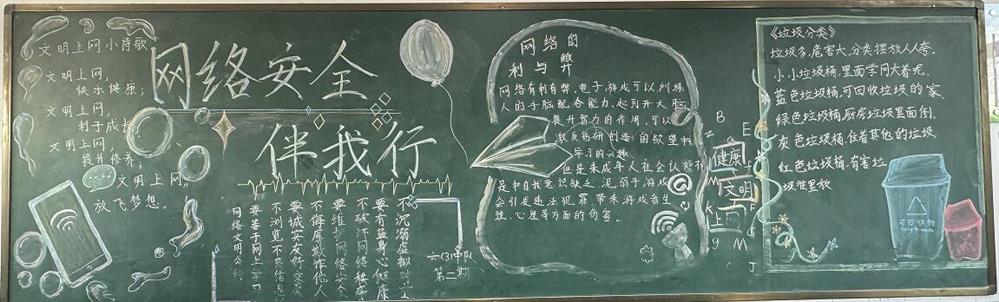 文明上网小诗歌
文明上网,
快乐健康;
文明上网,
利于成长;
文明上网,
提升修养;
文明上网,
放飞梦想。
网络安全
伴我行
不沉溺虚拟时空
要有益身心健康
不破坏网络秩序
要维护网络安全
不侮辱欺诈他人
要诚实友好交流
不浏览不良信息
要善于网上学习
网络文明公约
六(3)中队
第二期
网络的
利与弊
网络有利有弊,电子游戏可以训练
人的手脑配合能力,起到开大脑
提升智力的作用,可以
激发钻研创造的欲望和
学习的兴趣
但是未成年人社会认知不
足和自我意识缺乏,沉溺于游戏
会引发违法犯罪,带来游戏者生
理、心里等方面的伤害。
健康
文明
上网
《垃圾分类》
垃圾多,危害大,分类摆放人人夸,
小小垃圾桶,里面学问大着呢.
蓝色垃圾桶,可回收垃圾的家.
绿色垃圾桶,厨房垃圾里面倒,
灰色垃圾桶,住着其他的垃圾
红色垃圾桶,有害垃
圾堆里秋
可回收物